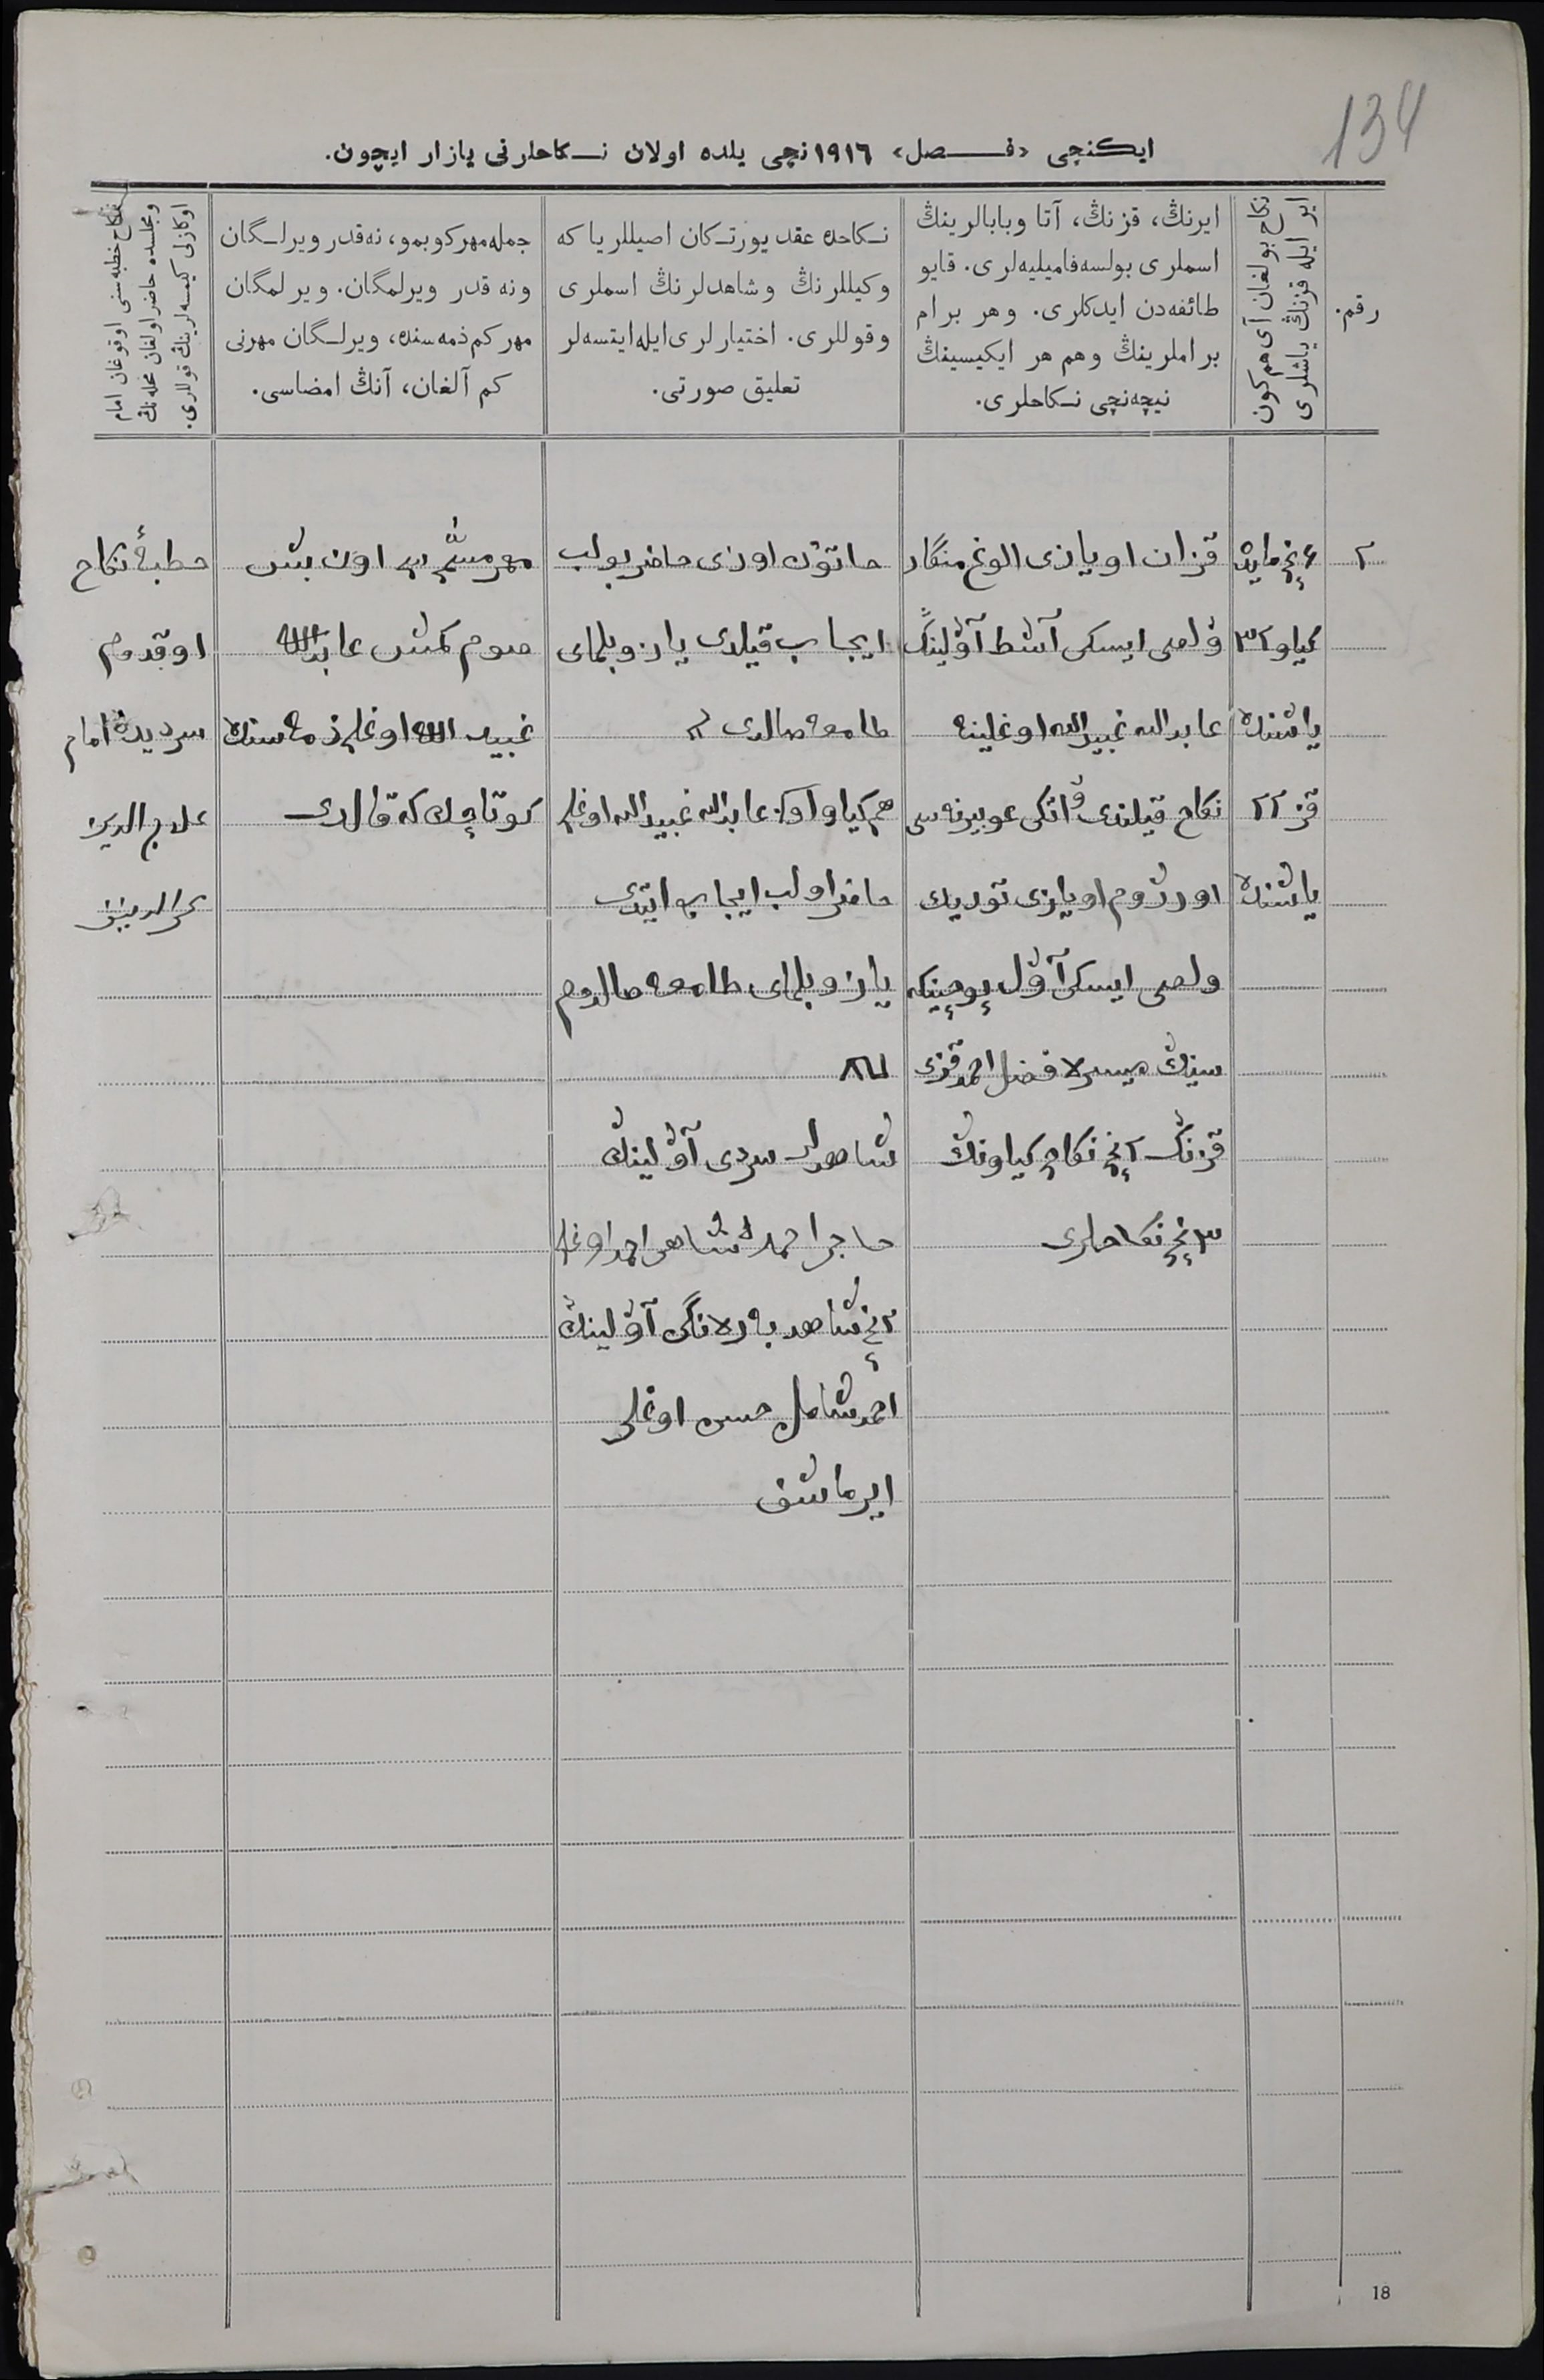 134
ایكنچی «فصل» ١٩١٦نچی یلده اولان نكاحلرنی یازار ایچون.
رقم.
نكاح بولغان آی هم كون
ایر ایله قزنڭ یاشلری
ایرنڭ، قزنڭ، آتا وبابالرینڭ
اسملری بولسه فامیلیه‌لری. قایو
طائفه‌دن ایدكلری. وهر برام
براملرینڭ وهم هر ایكیسینڭ
نیچه‌نچی نكاحلری.
نكاحده عقد یورتكان اصیللر یا كه
وكیللرنڭ وشاهدلرنڭ اسملری
وقوللری. اختیارلری ایله ایتسه‌لر
تعلیق صورتی.
جمله مهر كوبمو، نه‌قدر ویرلگان
ونه قدر ویرلمگان. ویرلمگان
مهر كم ذمه‌سنده، ویرلگان مهرنی
كم آلغان، آنڭ امضاسی.
نكاح خطبه‌سنی اوقوغان امام
ومجلسده حاضر اولغان محله‌نڭ
اوكازلی كیمسه‌لرینڭ قوللری.
٢
كیاو ٣٢
یاشنده
قز ٢٢
یاشنده
قزان اویازی الوغ منگار
ولصی ایسكی آشط آولینڭ
عابدالله عبیدالله اوغلینه
نكاح قیلندی واتكی غوبیرنه‌سی
اورژوم اویازی تودیك
ولصی ایسكی آول
فضل احمد قزی
قزنڭ ٢نچی نكاح كیاونڭ
٣نچی نكاحلری
خاتون اوزی حاضر بولب
ایجاب قیلدی یازو بلمای
طامغه صالدی
هم كیاو اوزی عابدالله عبیدالله اوغلی
حاضر اولب ایجاب ایتدی
یازو بلمای طامغه صالدوم
شاهدلر سردی آولینڭ
احمد اوغلی
٢نچی شاهد آولینڭ
احمدشامل حسن اوغلی
مهر اون بش
صوم كمش عابدالله
عبیدالله اوغلی ذمه‌سنده
قالدی
خطبهٔ نكاح
اوقدوم
سردیده امام
علاج الدین
18